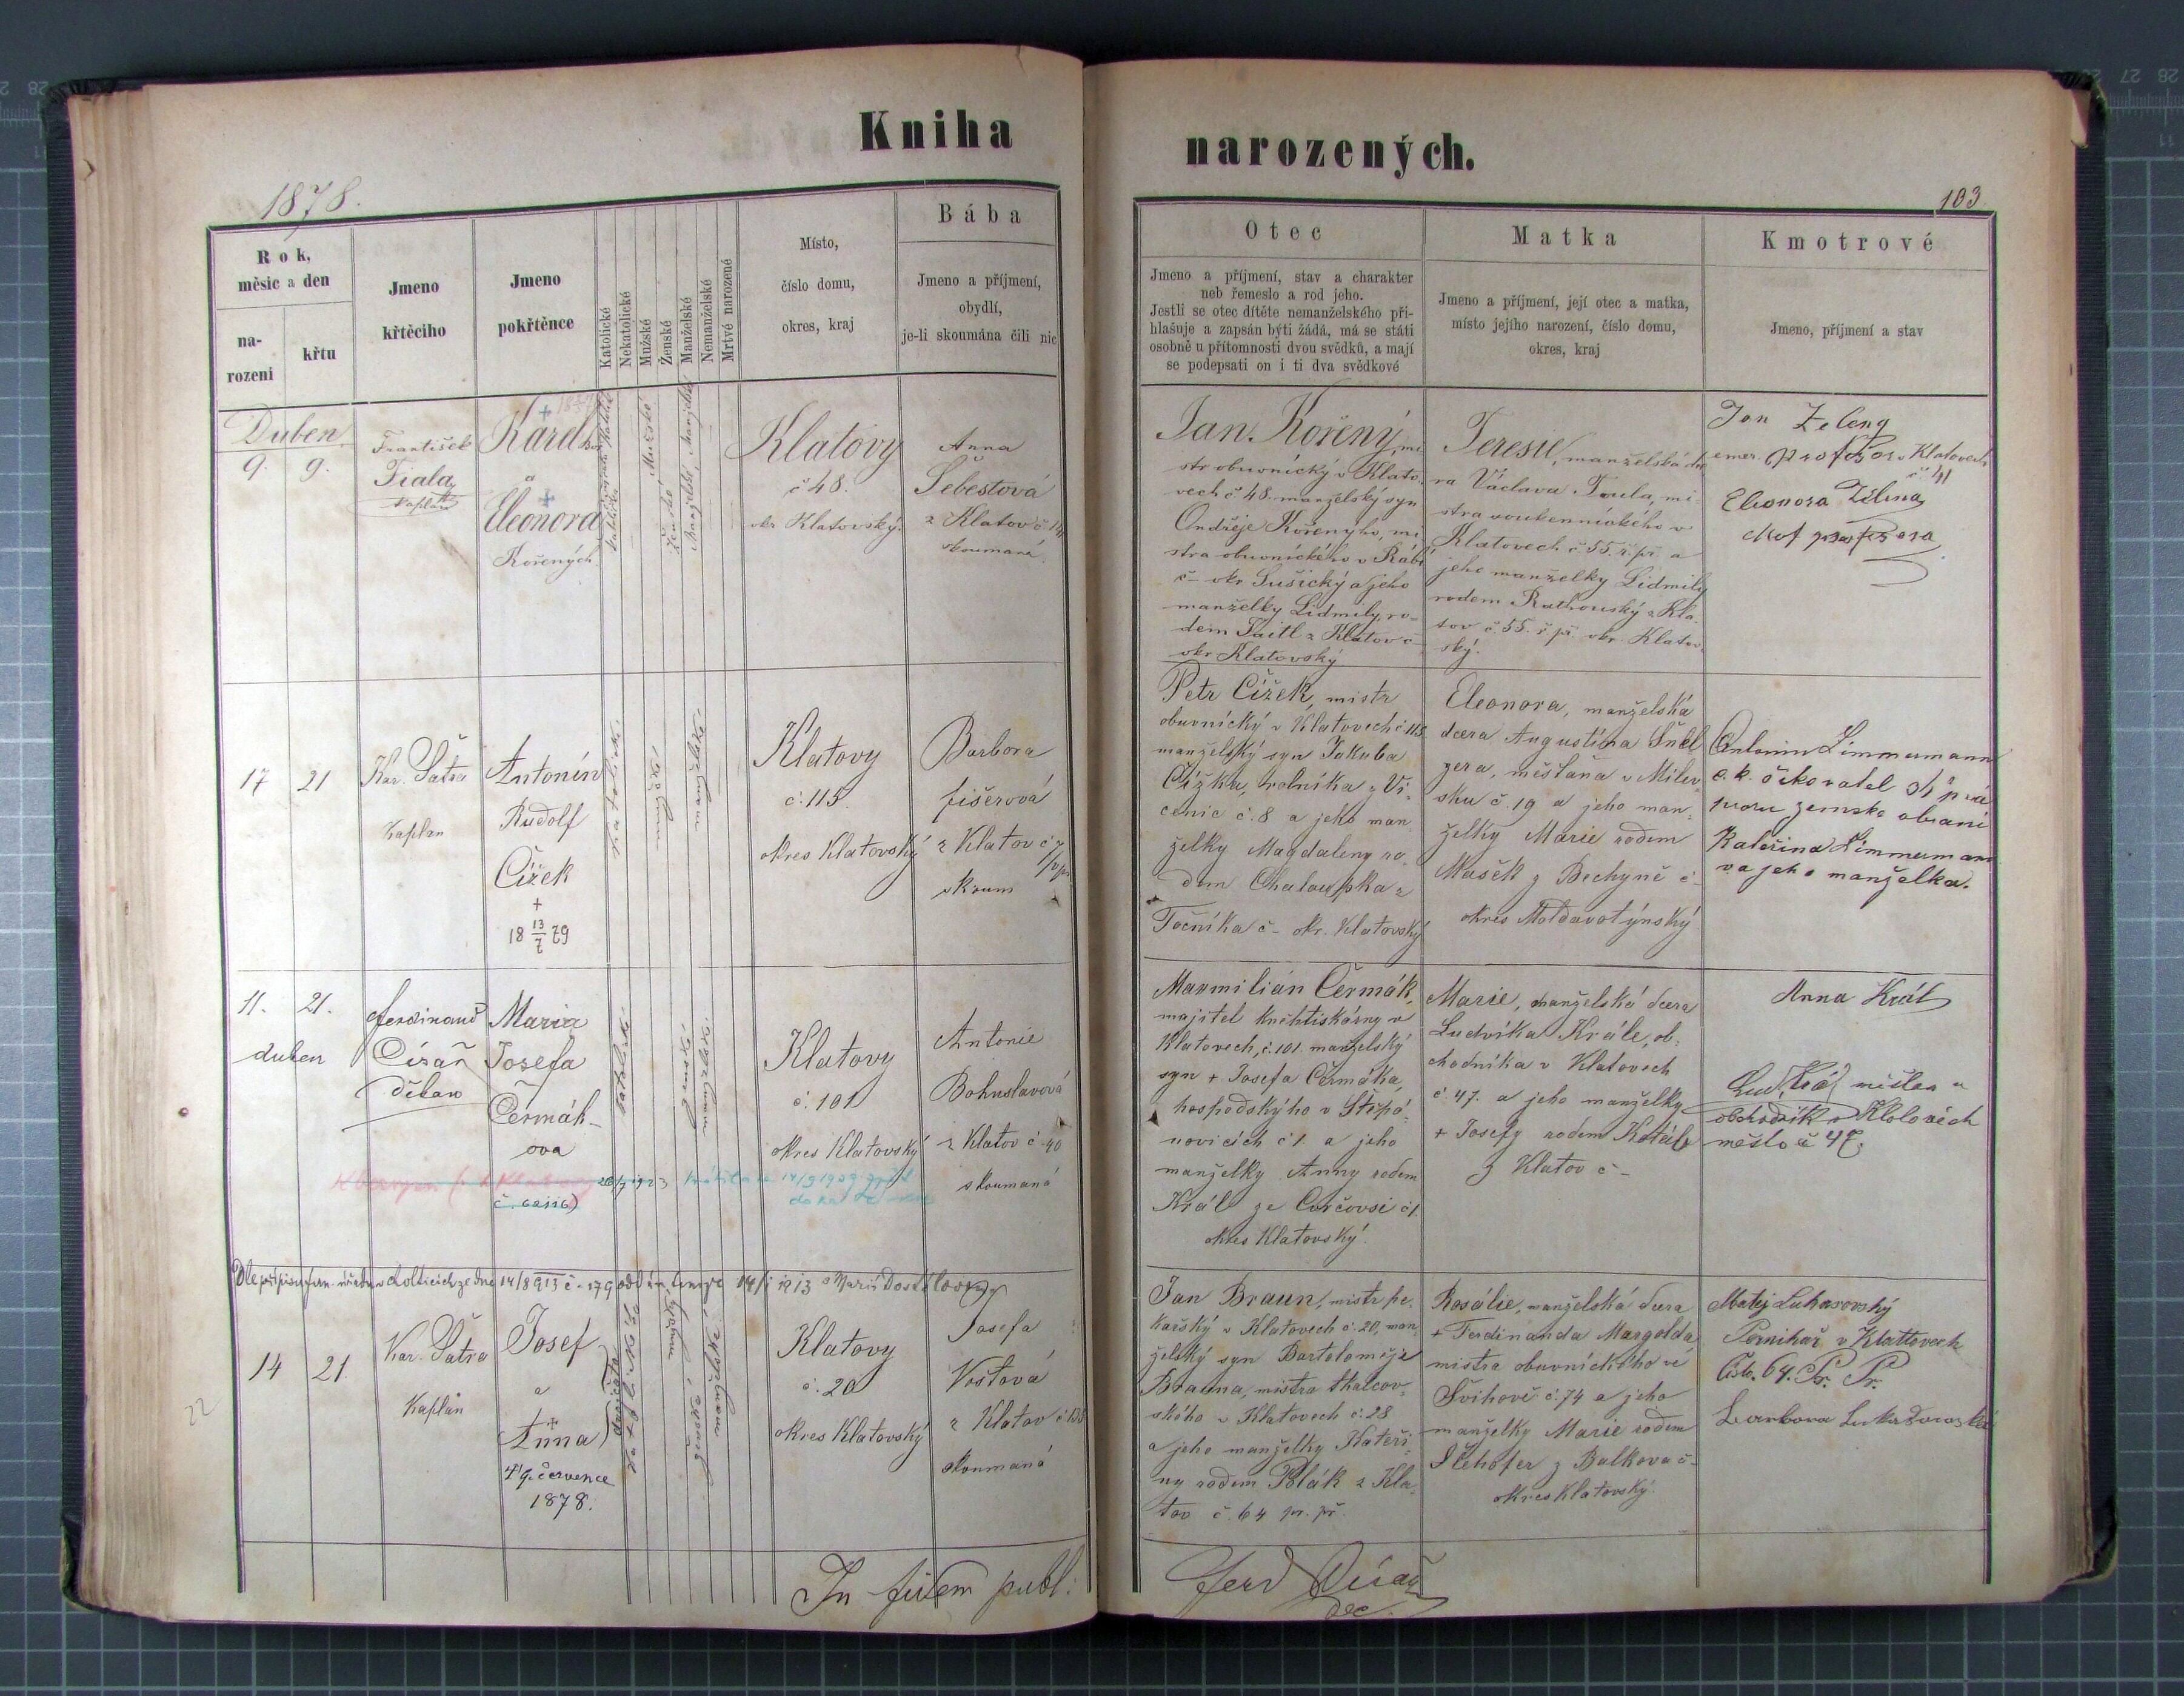 Kniha
narozených.
1878.
103
Rok,
měsíc a den
na-
rození
křtu
Jmeno
křtěcího
Jmeno
pokřtěnce
Katolické
Nekatolické
Mužské
Ženské
Manželské
Nemanželské
Mrtvé narozené
Místo,
číslo domu,
okres, kraj
Bába
Jmeno a příjmení,
obydlí,
je-li skoumána čili nic
Otec
Jmeno a příjmení, stav a charakter
neb řemeslo a rod jeho.
Jestli se otec dítěte nemanželského při-
hlašuje a zapsán býti žádá, má se státi
osobně u přítomnosti dvou svědků, a mají
se podepsati on i ti dva svědkové
Matka
Jmeno a příjmení, její otec a matka,
místo jejího narození, číslo domu,
okres, kraj
Kmotrové
Jmeno, příjmení a stav
Duben
9. 9.
František
Fiala
kaplan
Karel
a
Eleonora
Kořených
Mužské
Ženské
Manželské
Klatovy
č 48.
okr Klatovský.
Anna
Šebestová
z Klatov č
skoumaná
Jan Kořený, mi
str obuvnický v Klato
vech č 48. manželský syn
Ondřeje Kořenýho, mi
stra obuvnického v Rabí
č – okr Sušický a jeho
manželky Lidmily, ro-
dem Taitl z Klatov č
okr Klatovský
Teresie, manželská dce
ra Václava Toula, mi
stra soukennického v
Klatovech č 55. ř. př. a
jeho manželky Lidmily
rodem Rathouský z Kla-
tov č. 55. ř př. okr Klatov-
ský.
Jan Zeleny
emer. profesor v Klatovech
č 41
Eleonora
choť profesora
17 21
Kar. Šatra
kaplan
Antonín
Rudolf
Čížek
+
18 13/7 79
Klatovy
č. 115.
okres Klatovský
Barbora
fišerová
z Klatov č 7
skoum
Petr Čížek, mistr
obuvnický v Klatovech č. 115
manželský syn Jakuba
Čížka, rolníka z Vi-
cenic č. 8 a jeho man
želky Magdaleny ro-
dem Chaloupka z
Točníka č – okr. Klatovský
Eleonora, manželská
dcera Augustina Šnel
zera, měšťana v Milev-
sku č. 19 a jeho man-
želky Marie rodem
Mašek z Bechyně č –
okres Moldavotýnský
Antonin Zimmermann
c. k. očkovatel při pra
poru zemske obrani
Kateřina Zimmermann
va jeho manželka.
11. 21.
duben
Ferdinand
Císař
děkan
Maria
Josefa
Čermák-
ova
Klatovy
č. 101
okres Klatovský
Antonie
Bohuslavová
z Klatov č 40
skoumaná
Maxmilián Čermák,
majitel knihtiskárny v
Klatovech, č. 101. manželský
syn + Josefa Čermáka,
hospodskýho v Štěpá-
novicích č 1. a jeho
manželky Anny rodem
Král ze Curčovsi č 1.
okres Klatovský.
Marie, manželská dcera
Ludvíka Krále, ob-
chodníka v Klatovech
č 47. a jeho manželky
+ Josefy rodem
z Klatov č –
Anna Král
Lud. Král měšťan a
obchodník v Klatovech
město č 47.
14/8 1913 č. 179 14/1 1913 s Marií Dostálovou
14 21.
Kar. Šatra
kaplan
Josef
a
+
Anna
+ 9. července
1878.
dvojčata
Klatovy
č. 20
okres Klatovský
Josefa
Voštová
z Klatov č 158
skoumaná
Jan Braun, mistr pe-
kařský v Klatovech č. 20, man
želský syn Bartoloměje
Brauna, mistra tkalcov-
ského v Klatovech č. 28
a jeho manželky Kateři-
ny rodem Polák z Kla-
tov č. 64 pr. př.
Rosálie, manželská dcera
+ Ferdinanda Margolda
mistra obuvnického ve
Švihově č. 74 a jeho
manželky Marie rodem
z Balkova č –
okres Klatovský.
Matěj Lukasovský
Pernikař v Klattovech
Číslo. 64. Pr. Pr.
Barbora
22
In fidem publ:
Ferd Císař
dec.